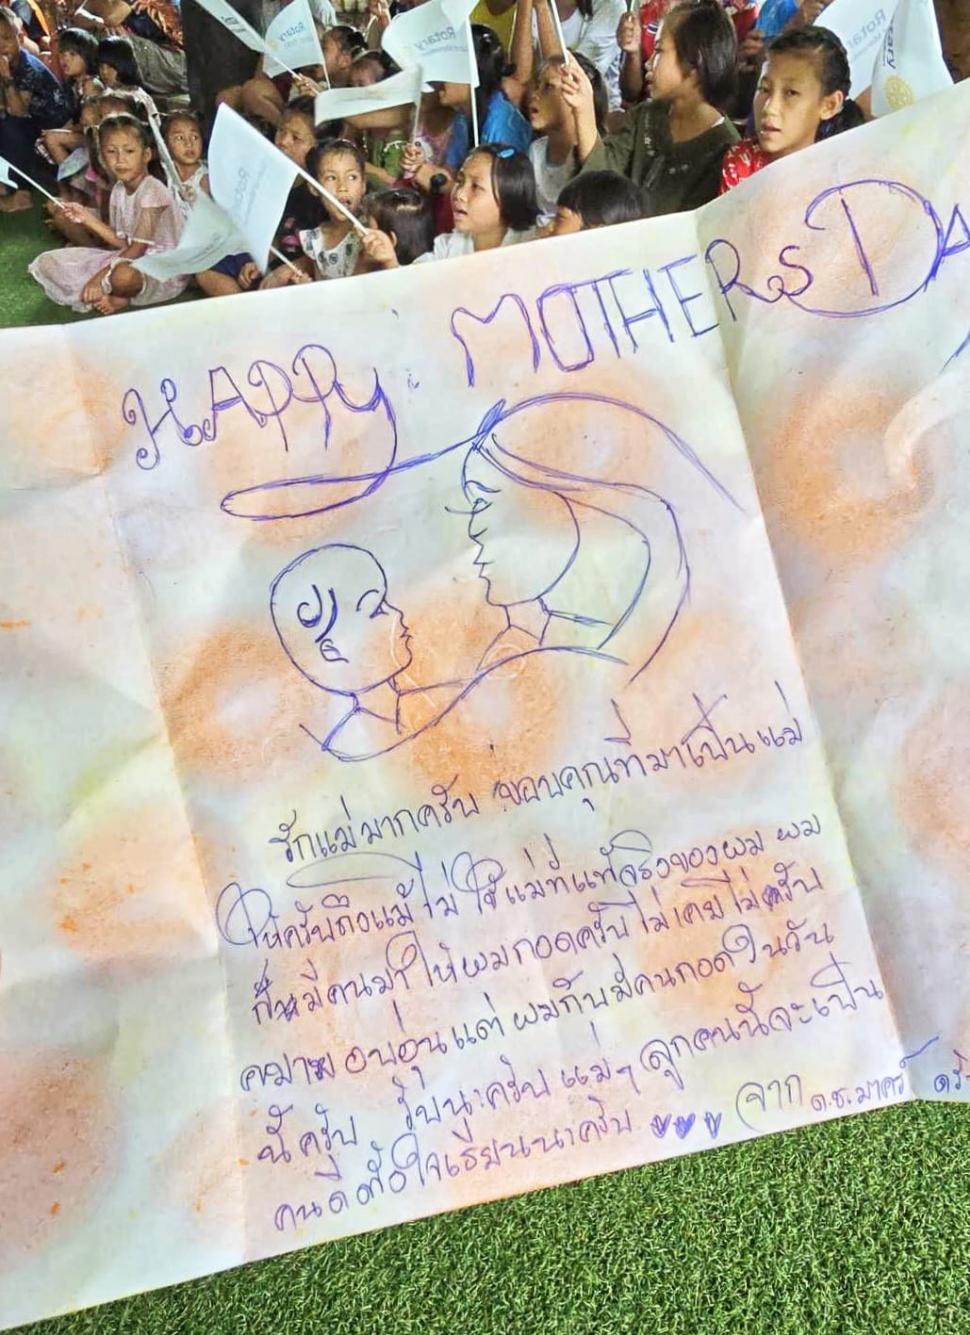 Rotary
Rotary
Rotary
HAPPY MOTHERS DA
รักแม่มากครับ ขอบคุณที่มาเป็นแม่
ให้ครับถึงแม้ไม่ใช้แม่ที่แท้จริงของผม ผม
ก็มีคนมาให้ผมกอดครับไม่เคยไม่ครับ
อบอุ่นแต่ ผมก็บมีคนกอดในวัน
นี้ครับ รับนะครับ แม่ๆ ลูกคนนี้จะเป็น
คนดีตั้งใจเรียนนาครับ จาก ด.ช.มาคร์